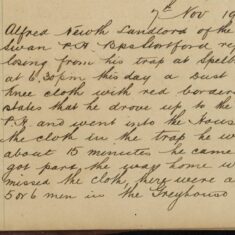 7th Nov 19
Alfred Newth Landlord of the
Swan P.H. Bps Stortford rep
losing from his trap at Spell
at 6.30pm this day a Dust
knee cloth with red border
states that he drove up to the
P.H and went into the House
the cloth in the trap he w
about 15 minutes he came
got pars, the way home w
missed the cloth, there were a
5 or 6 men in the Greyhound